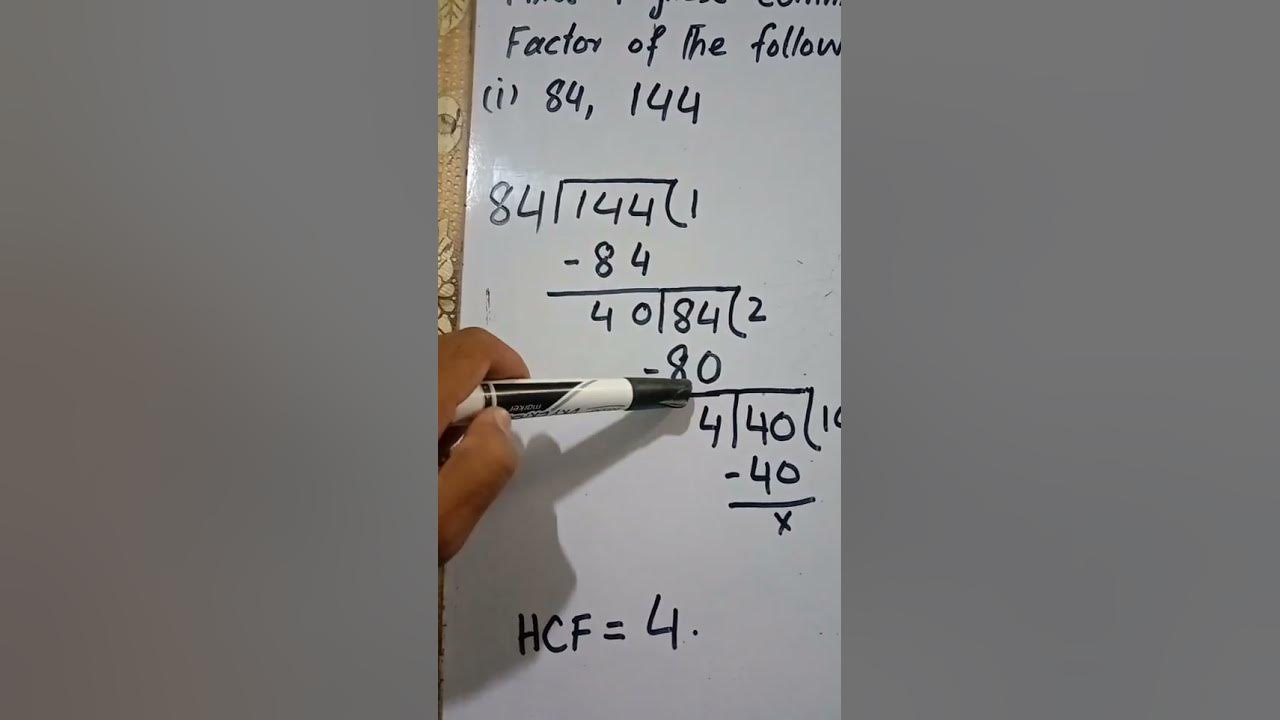 Factor of The follow
(i) 84, 144
84 144 1
- 84
40 84 2
- 80
4 40 10
- 40
x
HCF = 4.
marker